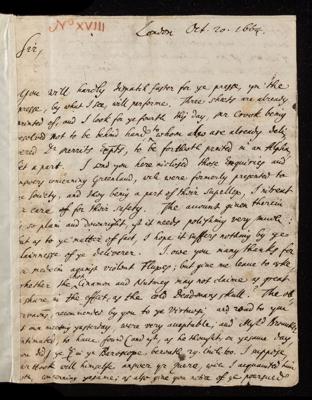 No XVIII
London Oct. 20. 1664.
Sir,
You will hardly dispatch faster for ye presse, yn the
presse, by what I see, will performe. Three sheets are already
printed of, and I look for ye fourth this day, Mr Crook being
resolved not to be behind hand wth whom also are already deli-
vered Dr Merrets to be forthwith printed in an
part. I send you here inclosed those Enquiries and
Answers concerning Greenland, wch were formerly presented to
ye Society, and they being a part of their Supellex, I intreat
ye care of for their safety. The account given therein
is so plain and downright, yt it needs polishing very much:
but as to ye matter of fact, I hope it suffers nothing by ye
plainnesse of ye deliverer. I owe you many thanks for
ye medecin against violent but give me leave to aske
whether the Cinamon and Nutmeg may not claime as great
a share in the effect, as the cold Deadmans skull. The ob-
servations, recommended by you to ye Virtuosi, and read to you
at our meeting yesterday, were very acceptable, and My Ld Brouncker
intimated, to have found (and yt, as he thought, on yesame day
you did) ye in ye Baroscope. I suppose,
Mr Hook will himself answer yr quere, wch I acquainted him
concerning as also give you notice of ye